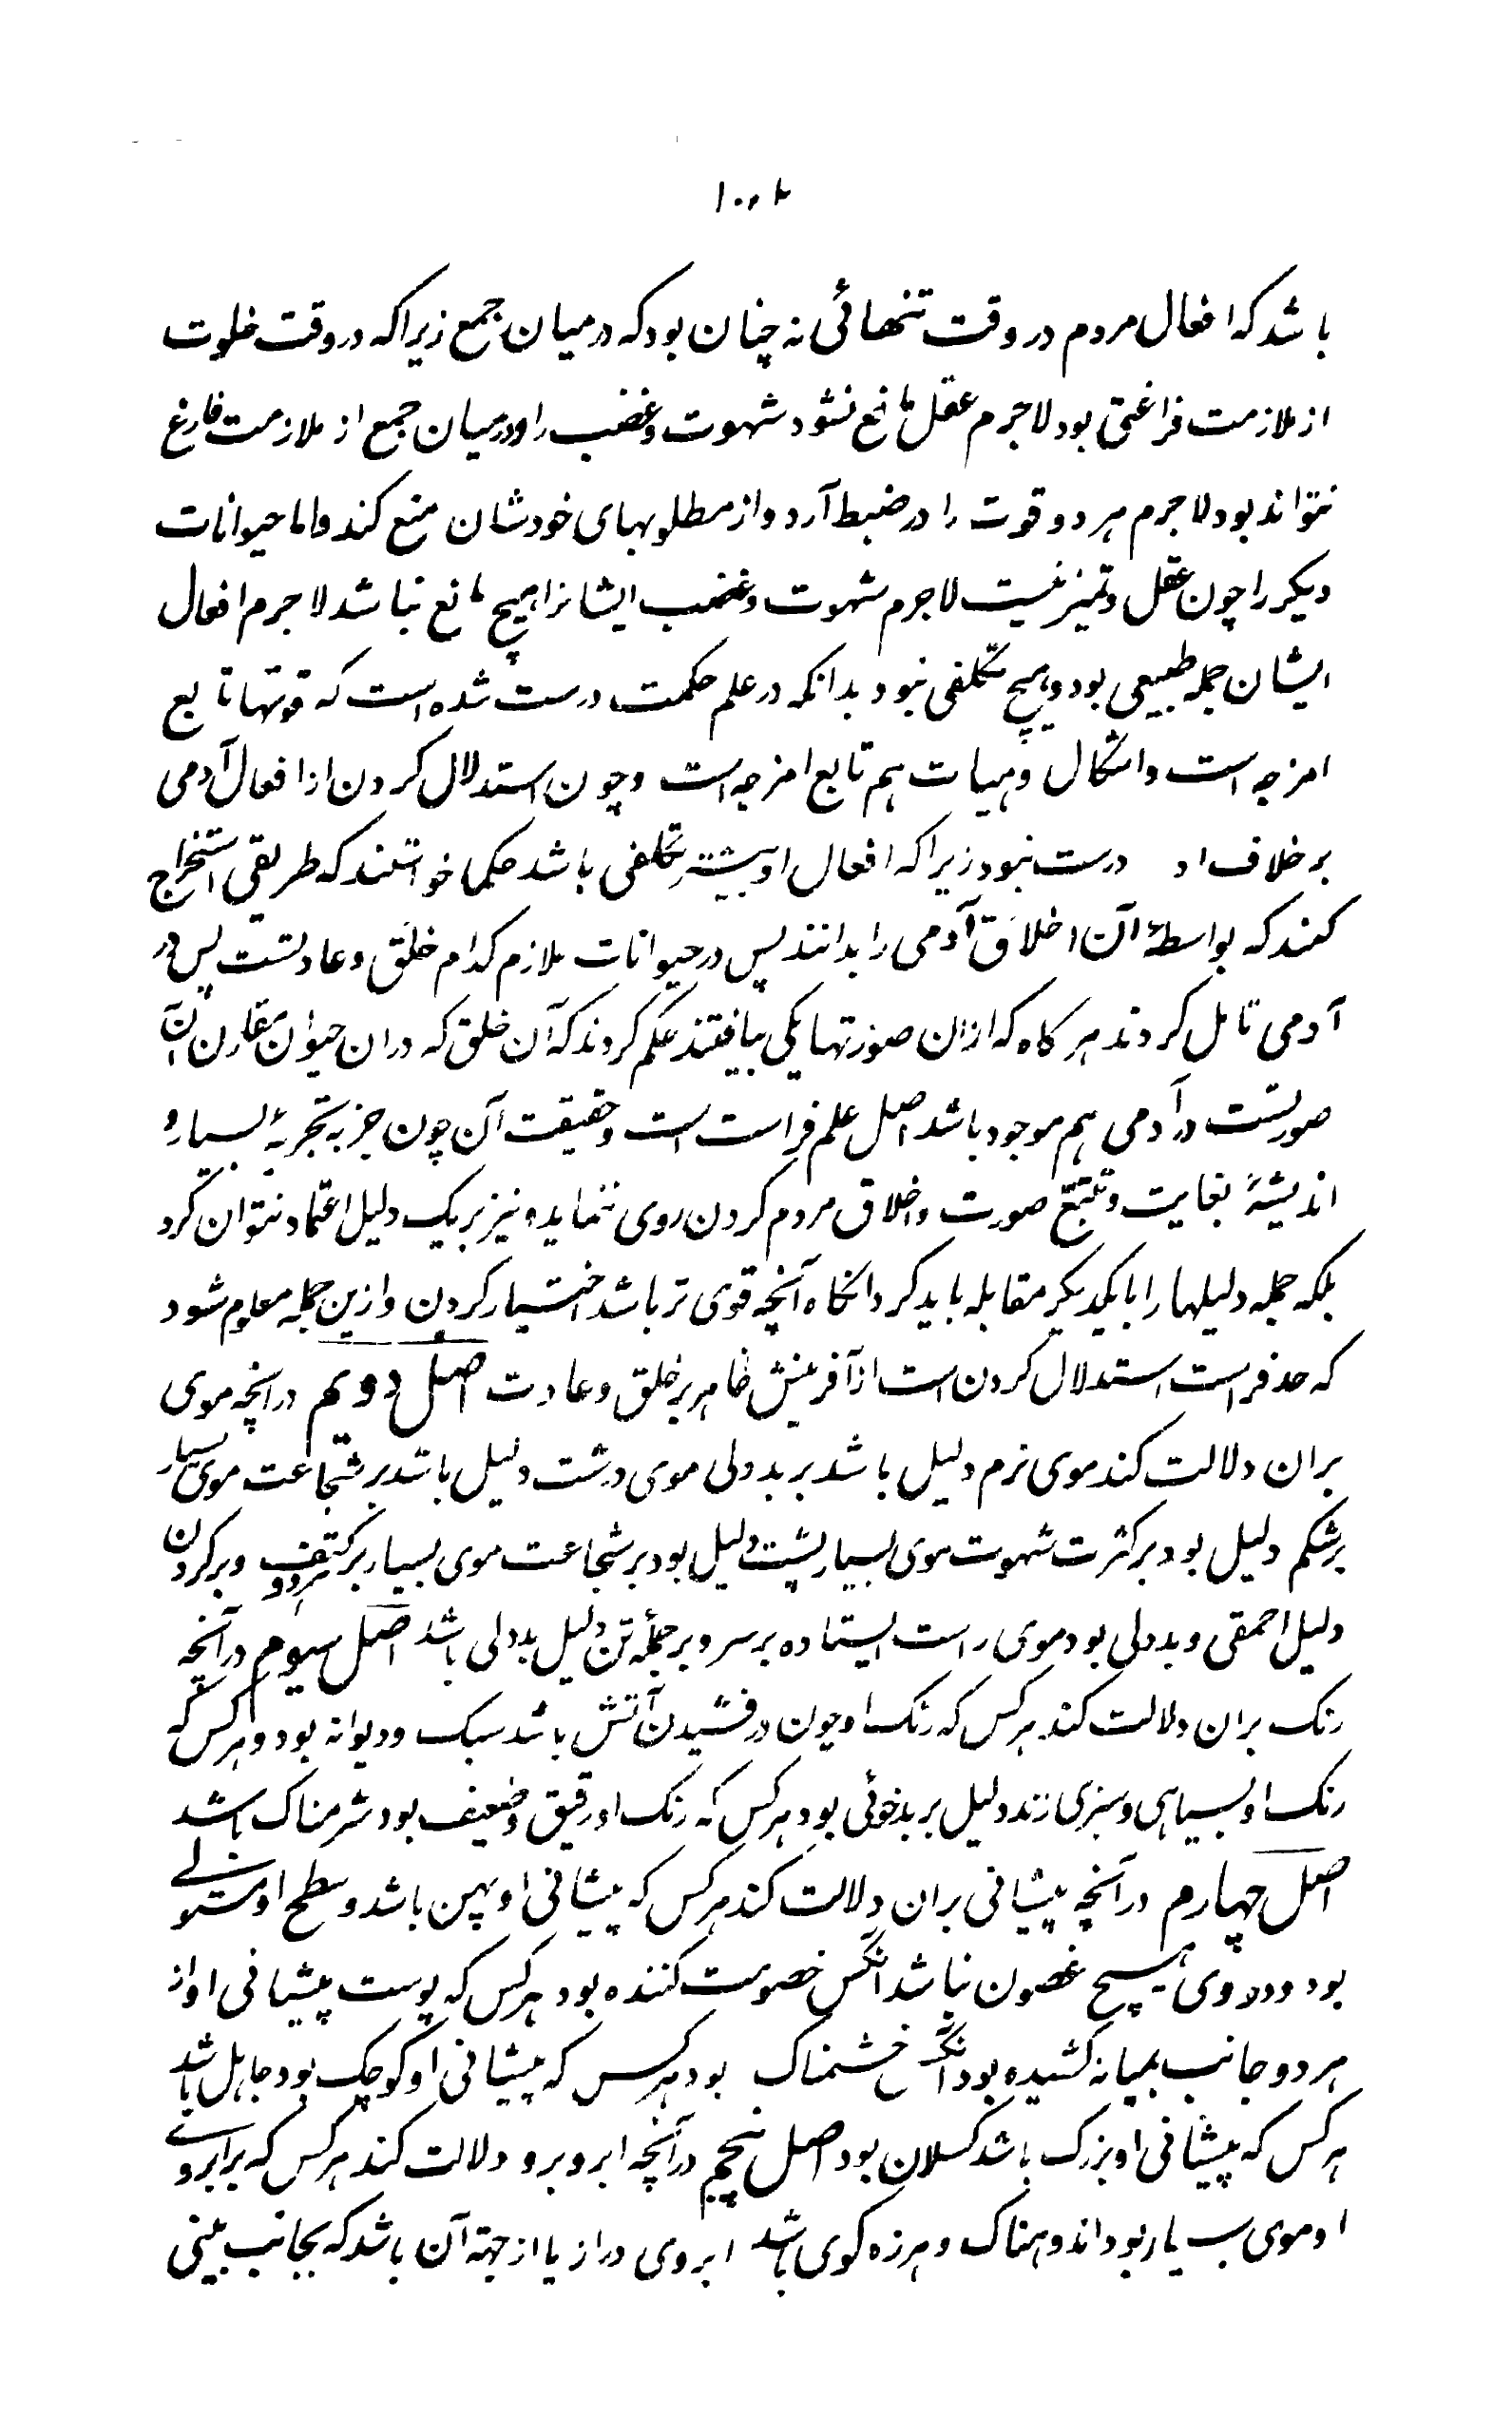 ۱۰۴
باشد که افعال مردم در وقت تنهائی نه چنان بود که در میان جمع زیرا که در وقت خلوت
از ملازمت فراغتی بود لاجرم عقل مانع نشود شهوت و غضب را و در میان جمع از ملازمت فارغ
نتواند بود لاجرم هر دو قوت را در ضبط آرد و از مطلوبهای خودشان منع کند و اما حیوانات
دیکر را چون عقل و تمیز نیست لاجرم شهوت و غضب ایشانرا هیچ مانع نباشد لاجرم افعال
ایشان جمله طبیعی بود و هیچ تکلفی نبود بدانکه در علم حکمت درست شده است که قوتها تابع
امزجه است و اشکال و هیات هم تابع امزجه است و چون استدلال کردن از افعال آدمی
بر خلاف او درست نبود زیرا که افعال او بیشتر تکلفی باشد حکما خواستند که طریقی استخراج
کنند که بواسطهٔ آن اخلاق آدمی را بدانند پس در حیوانات ملازم کدام خلق و عادتست پس در
آدمی تامل کردند هر کاه که ازان صورتها یکی بیافتند حکم کردند که آن خلق که دران حیوان مقارن آن
صورتست در آدمی هم موجود باشد اصل علم فراست است و حقیقت آن چون جز به تجربهٔ بسیار و
اندیشهٔ بغایت و تتبع صورت و اخلاق مردم کردن روی ننماید و نیز بر یک دلیل اعتماد نتوان کرد
بلکه جمله دلیلها را با یکدیکر مقابله باید کرد و انکاه آنچه قوی تر باشد اختیار کردن و ازین جمله معلوم شود
که حد فراست استدلال کردن است از آفرینش ظاهر بر خلق و عادت اصل دویم در آنچه موی
بران دلالت کند موی نرم دلیل باشد بر بددلی موی درشت دلیل باشد بر شجاعت موی بسیار
بر شکم دلیل بود بر کثرت شهوت موی بسیار پشت دلیل بود بر شجاعت موی بسیار بر کتف مردو و بر کردن
دلیل احمقی و بددلی بود موی راست ایستاده بر سر و بر جملهٔ تن دلیل بددلی باشد اصل سیوم در آنچه
رنک بران دلالت کند هر کس که رنک او چون درفشیدن آتش باشد سبک و دیوانه بود و هر کس که
رنک او بسیاهی و سبزی زند دلیل بر بدخوئی بود هر کس که رنک او رقیق و ضعیف بود شرمناک باشد
اصل چهارم در آنچه پیشانی بران دلالت کند هر کس که پیشانی او پهن باشد و سطح او مستولے
بود و در وی هیچ غصون نباشد آنکس خصومت کننده بود هر کس که پوست پیشانی او از
هر دو جانب بمیانه کشیده بود آنکس خشمناک بود هر کس که پیشانی او کوچک بود جاهل باشد
هر کس که پیشانی او بزرک باشد کسلان بود اصل پنجم در آنچه ابرو برو دلالت کند هر کس که بر ابروے
او موی بسیار بود اندوهناک و هرزه کوی باشد ابروی دراز یا از جهة آن باشد که بجانب بینی